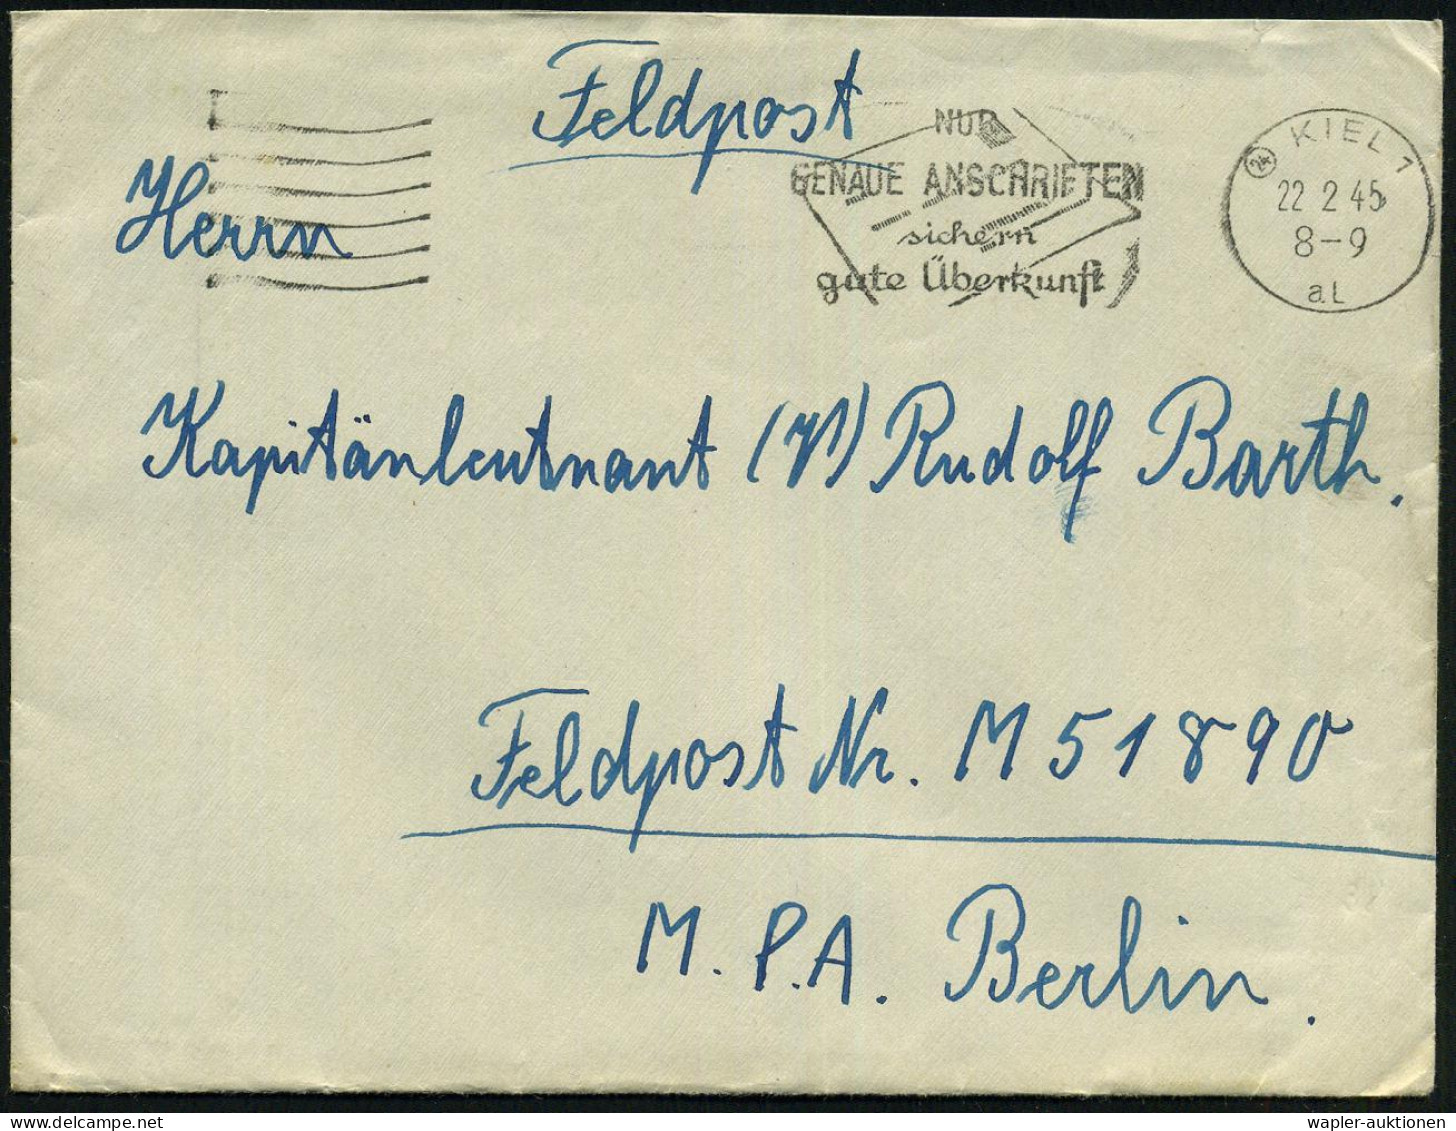 Feldpost
NUR
GENAUE ANSCHRIFTEN
sichern
gute Überkunft
KIEL 1
24
22 2 45
8-9
aL
Herrn
Kapitänleutnant (V) Rudolf Barth.
Feldpost Nr. M 51890
M. P. A. Berlin.
wapler-auktionen